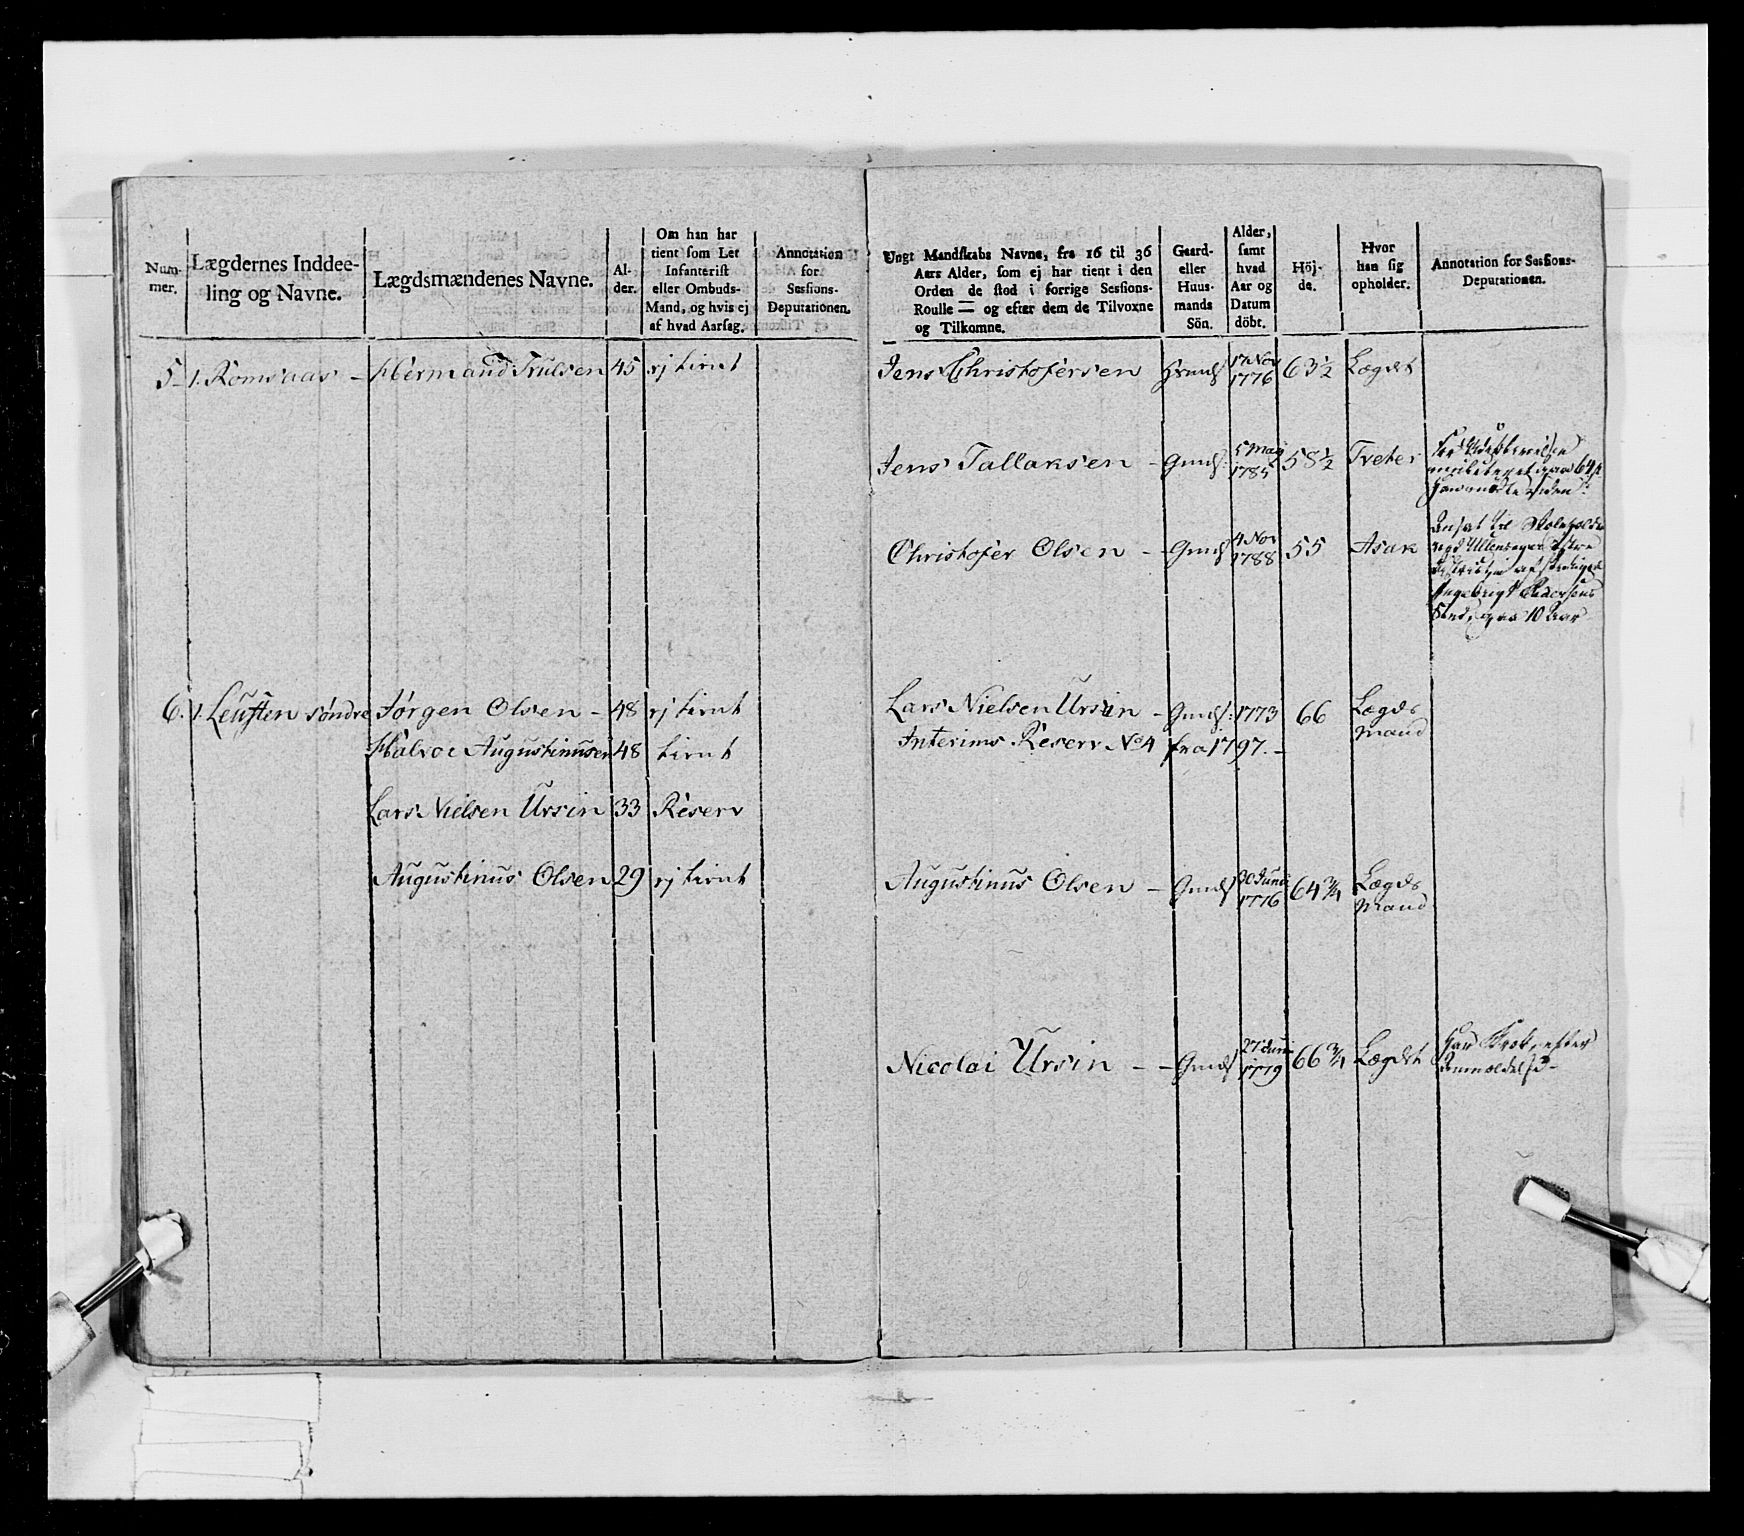 Num-
mer.
Lægdernes Inddee-
ling og Navne.
Lægdsmændenes Navne.
Al-
der.
Om han har
tient som Let
Infanterist
eller Ombuds-
Mand, og hvis ej
af hvad Aarsag.
Annotation
for
Sessions-
Deputationen.
5. 1. Romsaas - Hermand Trulsen 45 ej tient
6. 1. Leusten söndre Jörgen Olsen - 48 ej tient
Halvor Augustinusen 48 tient
Lars Nielsen Ursin 33 Reserv
Augustinus Olsen 29 ej tient
Ungt Mandskabs Navne, fra 16 til 36
Aars Alder, som ej har tient i den
Orden de stod i forrige Sessions-
Roulle — og efter dem de Tilvoxne
og Tilkomne.
Gaard-
eller
Huus-
mands
Sön.
Alder,
samt
hvad
Aar og
Datum
döbt.
Höj-
de.
Hvor
han sig
opholder.
Annotation for Sessions-
Deputationen.
Jens Christofersen 17 Nov 1776 63½ Lægdet
Jens Tallaksen - Gmds: 5 May 1785 58½ Tveter
Christofer Olsen - Gmds 4 Nov 1788 55 Asak
Ansat til Skoleholder
ved Ullensager Östre
Ingebrigt Pedersens
Sted, paa 10 Aar
Lars Nielsen Ursin - Gmds: 1773 66 Lægds
Mand
Interims Reserv No 4 fra 1797. -
Augustinus Olsen - Gmds 30 Juni 1776 64¾ Lægds
Mand
Nicolai Ursin - - Gmds 27 Juni 1779 66¾ Lægdet
efter
Anmeldelse -